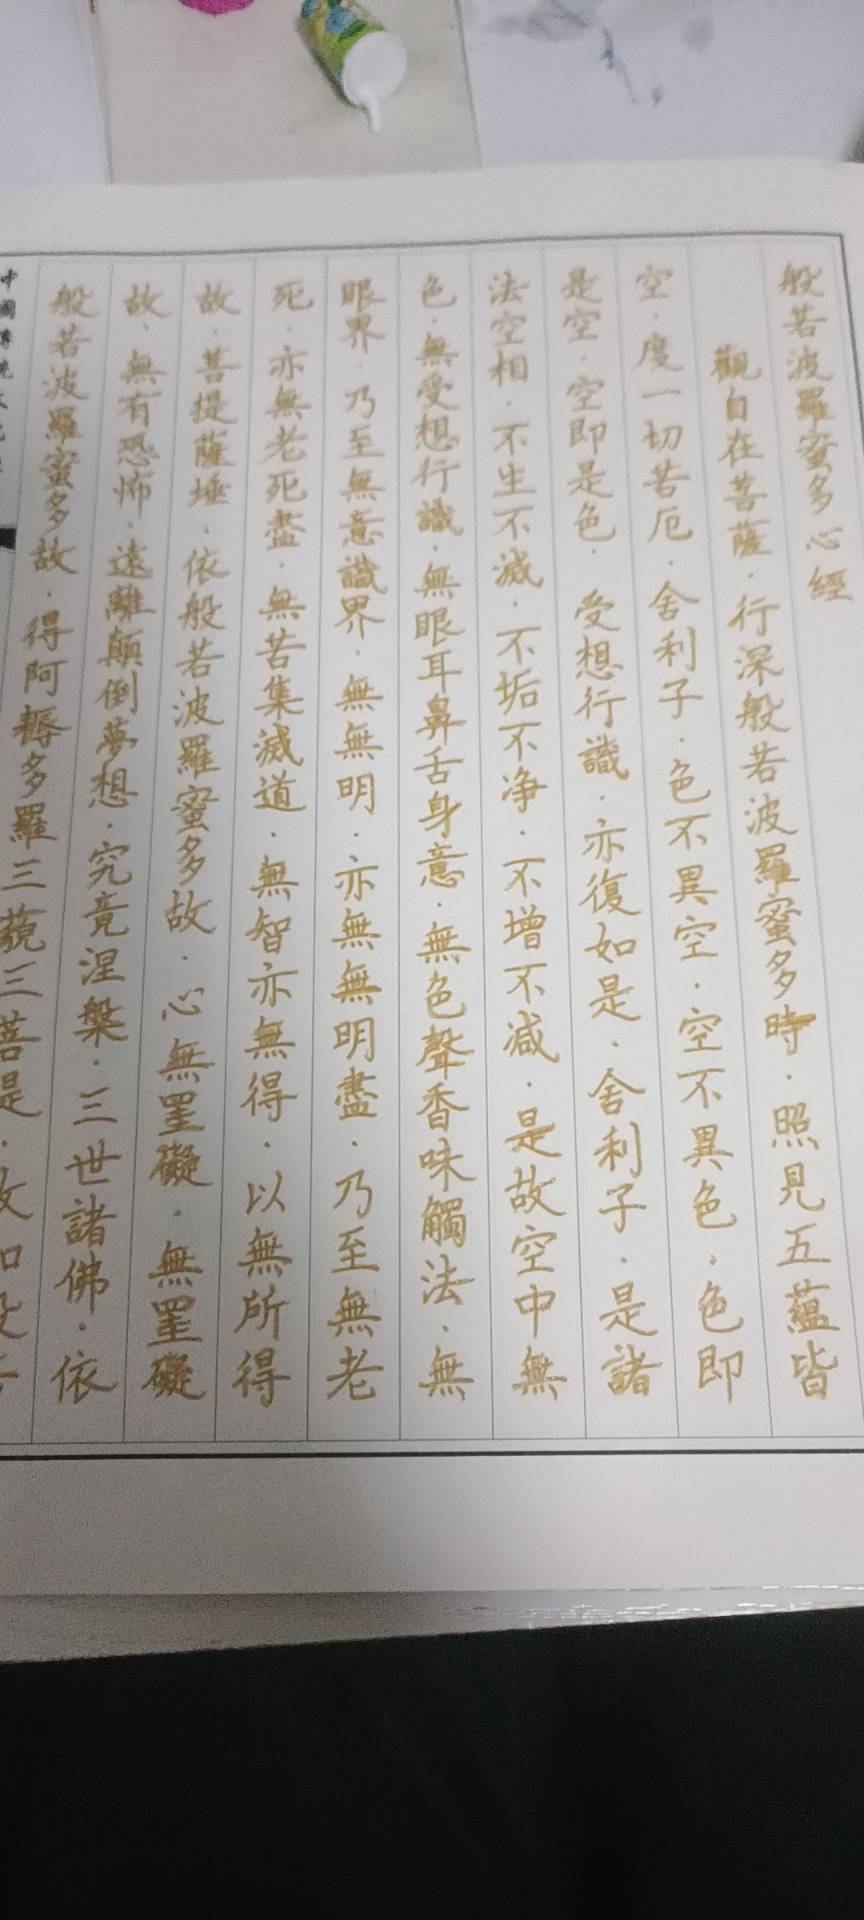 般若波羅蜜多心經
觀自在菩薩·行深般若波羅蜜多時·照見五蘊皆
空·度一切苦厄·舍利子·色不異空·空不異色·色即
是空·空即是色·受想行識·亦復如是·舍利子·是諸
法空相·不生不滅·不垢不净·不增不減·是故空中無
色·無受想行識·無眼耳鼻舌身意·無色聲香味觸法·無
眼界·乃至無意識界·無無明·亦無無明盡·乃至無老
死·亦無老死盡·無苦集滅道·無智亦無得·以無所得
故·菩提薩埵·依般若波羅蜜多故·心無罣礙·無罣礙
故·無有恐怖·遠離顛倒夢想·究竟涅槃·三世諸佛·依
般若波羅蜜多故·得阿耨多羅三藐三菩提·故知般
中國傳統文化